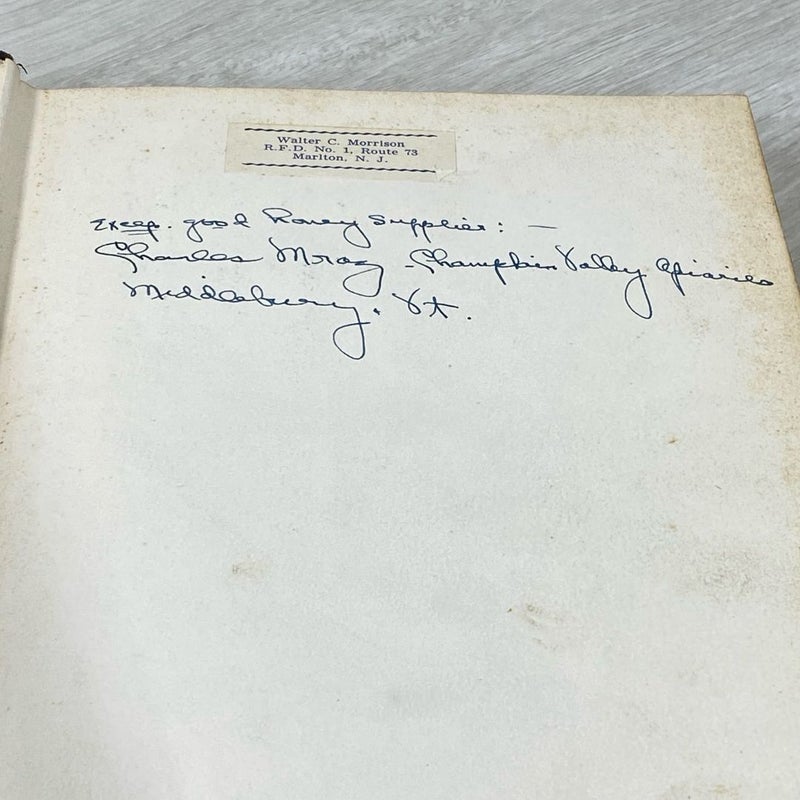 Walter C. Morrison
R.F.D. No. 1, Route 73
Marlton, N. J.
Excep. good Honey Supplier: —
Charles Mraz - Champlain Valley Apiaries
Middlebury, Vt.